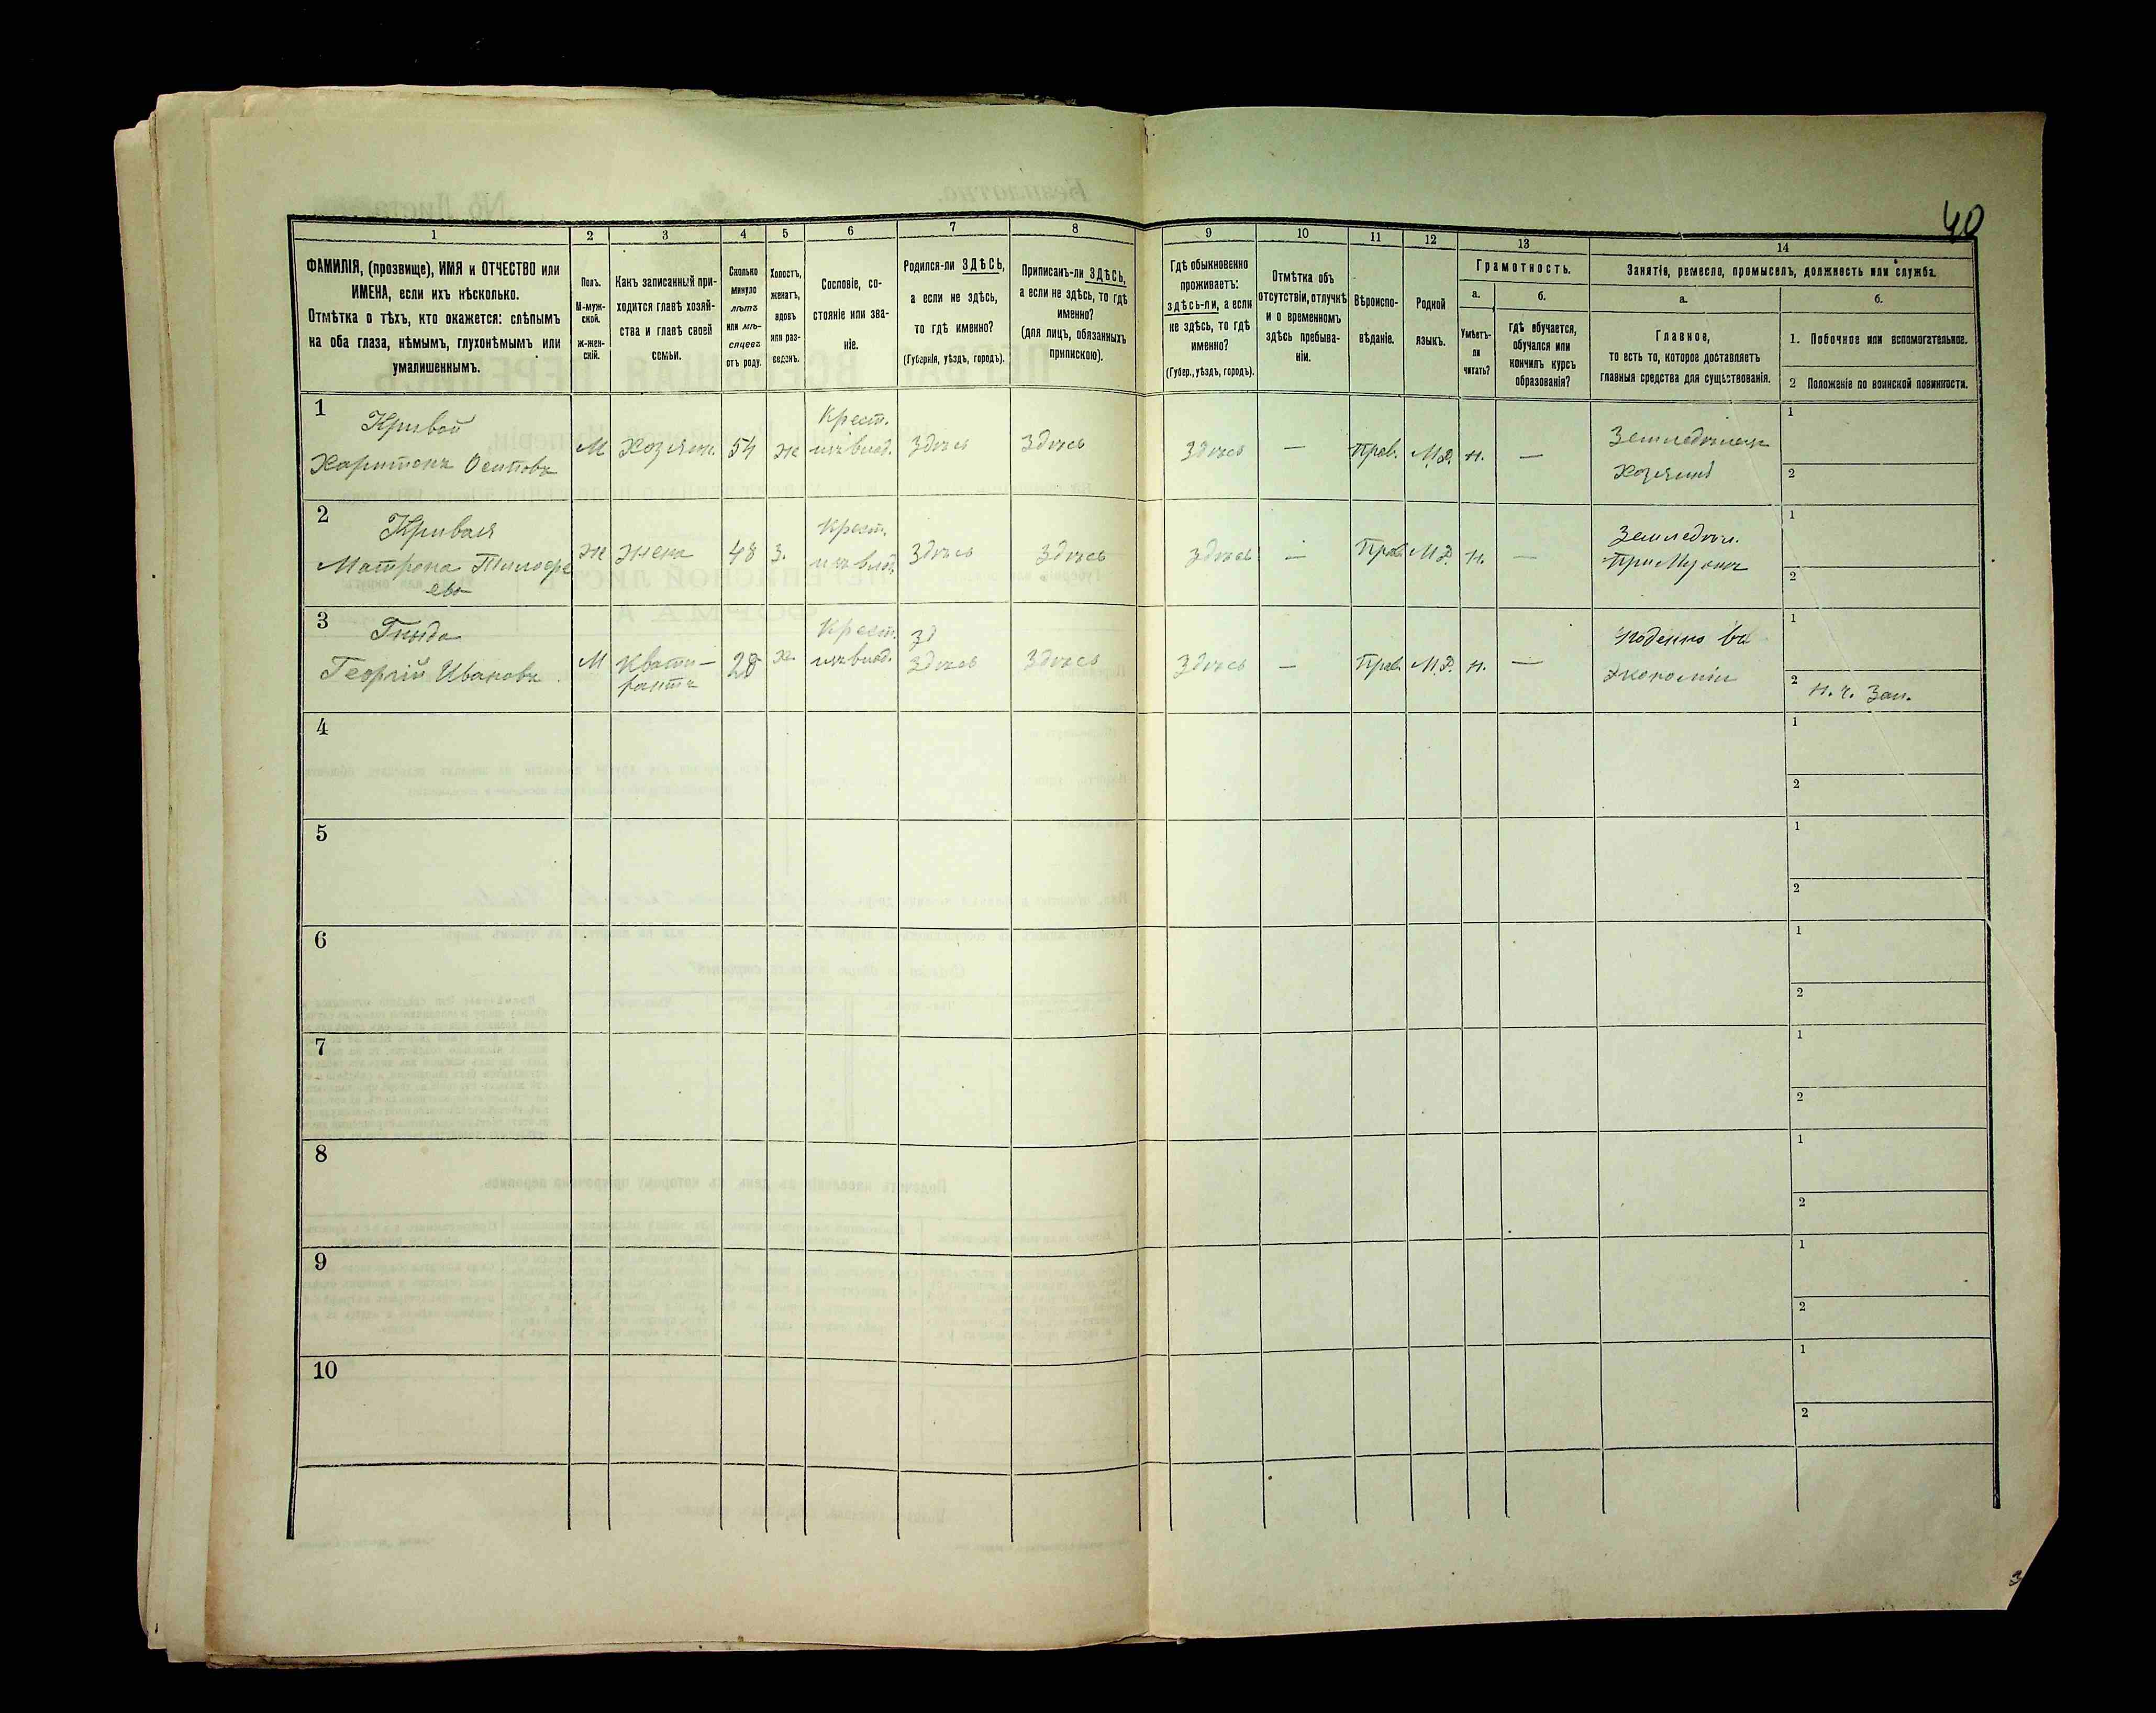 40
1 2 3 4 5 6 7 8 9 10 11 12 13 14
ФАМИЛІЯ, (прозвище), ИМЯ и ОТЧЕСТВО или
ИМЕНА, если ихъ нѣсколько.
Отмѣтка о тѣхъ, кто окажется: слѣпымъ
на оба глаза, нѣмымъ, глухонѣмымъ или
умалишеннымъ.
Полъ.
М-муж-
ской.
ж-жен-
скій.
Какъ записанный при-
ходится главѣ хозяй-
ства и главѣ своей
семьи.
Сколько
минуло
лѣтъ
или мѣ-
сяцевъ
отъ роду.
Холостъ,
женатъ,
вдовъ
или раз-
веденъ.
Сословіе, со-
стояніе или зва-
ніе.
Родился-ли ЗДѢСЬ,
а если не здѣсь,
то гдѣ именно?
(Губернія, уѣздъ, городъ).
Приписанъ-ли ЗДѢСЬ,
а если не здѣсь, то гдѣ
именно?
(для лицъ, обязанныхъ
припискою).
Гдѣ обыкновенно
проживаетъ:
здѣсь-ли, а если
не здѣсь, то гдѣ
именно?
(Губер., уѣздъ, городъ).
Отмѣтка объ
отсутствіи, отлучкѣ
и о временномъ
здѣсь пребыва-
ніи.
Вѣроиспо-
вѣданіе.
Родной
языкъ.
Грамотность.
а.
Умѣетъ-
ли
читать?
б.
гдѣ обучается,
обучался или
кончилъ курсъ
образованія?
Занятіе, ремесло, промыселъ, должность или служба.
а.
Главное,
то есть то, которое доставляетъ
главныя средства для существованія.
б.
1. Побочное или вспомогательное.
2 Положеніе по воинской повинности.
1
Кривой
Харитонъ Осиповъ
М
Хозяин.
54
ж
Крест.
Здѣсь
Здѣсь
Здѣсь
—
Прав.
М.Р.
н.
—
Земледѣлецъ
Хозяинъ
1
2
2
Кривая
Матрена Тимофе
ева
ж
жена
48
з.
Крест.
Здѣсь
Здѣсь
Здѣсь
—
Прав.
М.Р.
н.
—
Земледѣл.
При Мужѣ
1
2
3
Гнида
Георгій Ивановъ
М
Кварти-
рантъ
28
х.
Крест.
Зд
Здѣсь
Здѣсь
Здѣсь
—
Прав.
М.Р.
н.
—
Поденно въ
экономіи
1
2 н.ч. Зап.
4
1
2
5
1
2
6
1
2
7
1
2
8
1
2
9
1
2
10
1
2